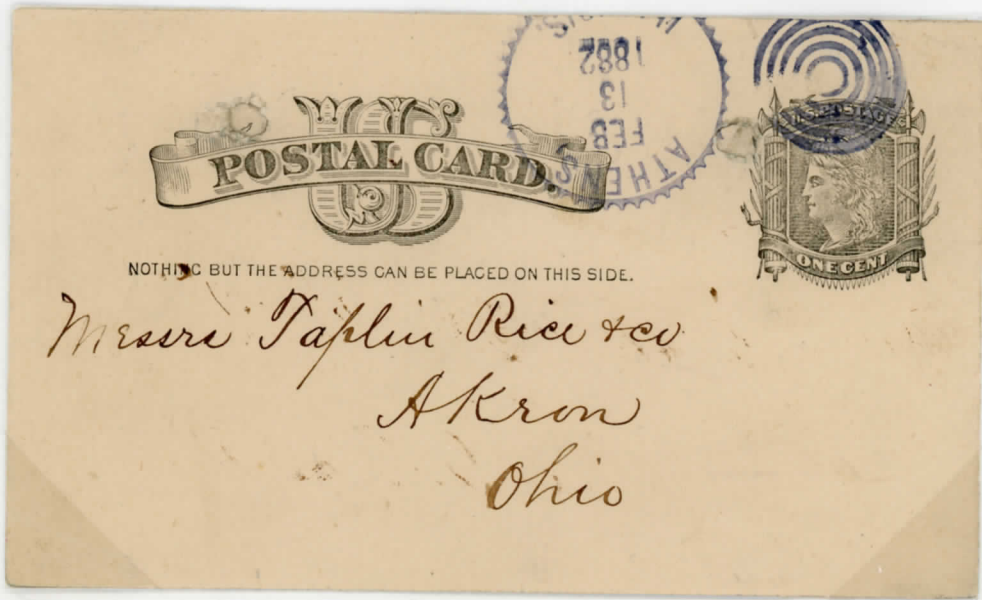 US
POSTAL CARD.
ATHENS
FEB
13
1882
U.S. POSTAGE
ONE CENT
NOTHING BUT THE ADDRESS CAN BE PLACED ON THIS SIDE.
Messrs Taplin Rice & co
Akron
Ohio